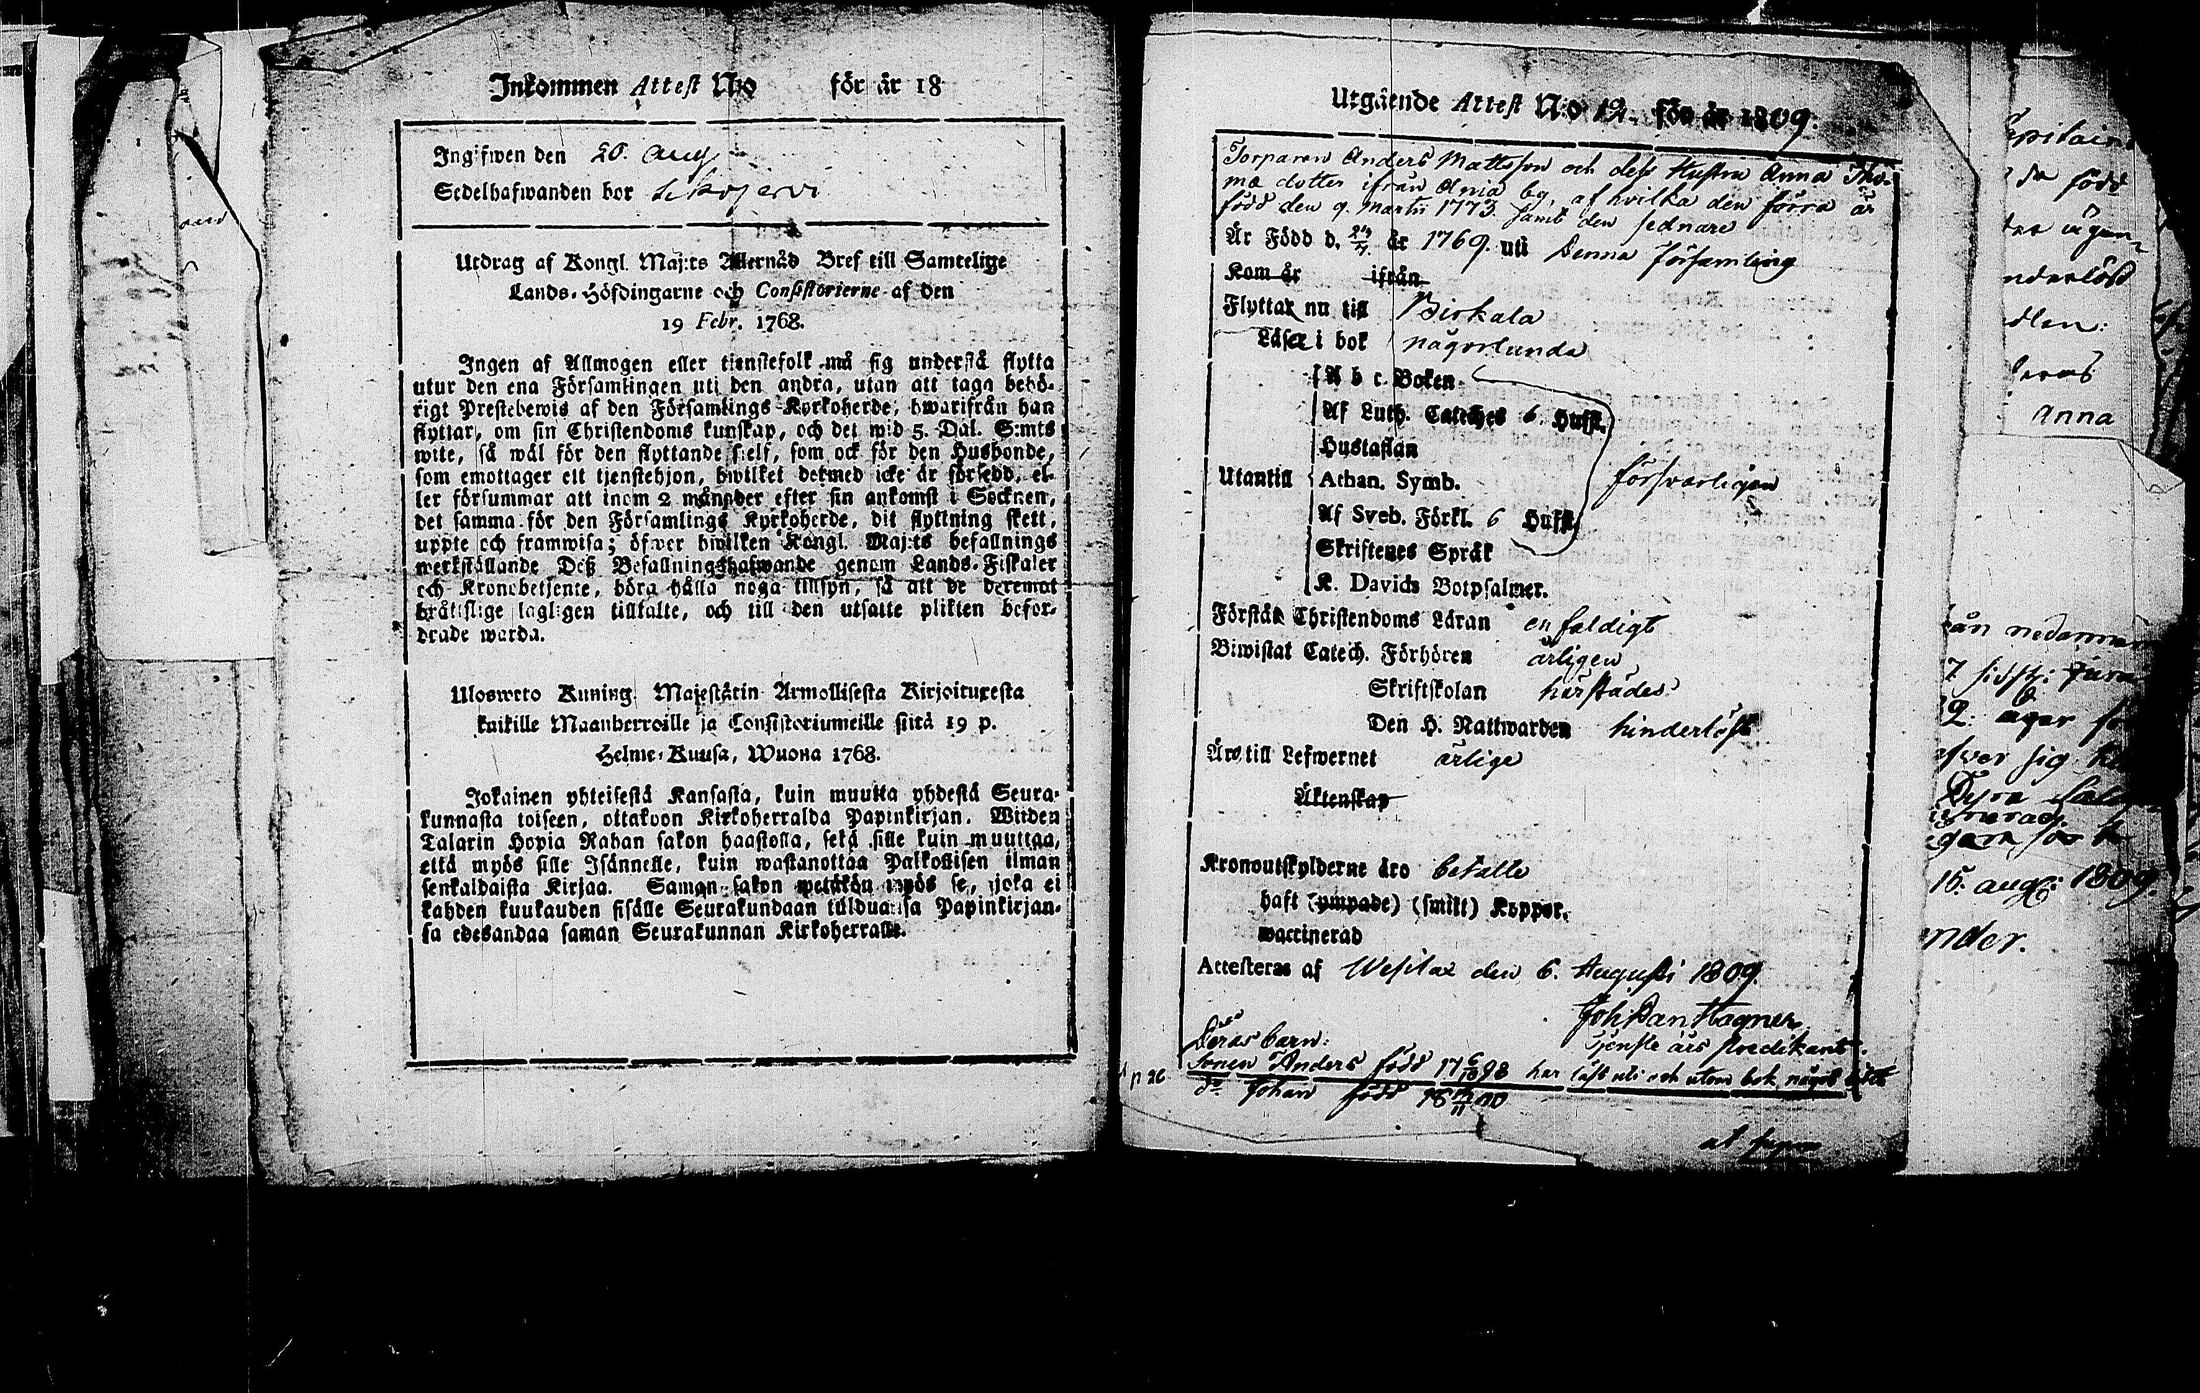 Inkommen Attest N:o för år 18
Ingifwen den 20. Aug
Sedelhafwanden bor
Utdrag af Kongl. Maj:ts Allernåd Bref till Samtelige
Lands-Höfdingarne och Consistorierne af den
19 Febr. 1768.
Ingen af Allmogen eller tjenstefolk må sig understå flytta
utur den ena Församlingen uti den andra, utan att taga behö-
rigt Prestebewis af den Församlings Kyrkoherde, hwarifrån han
flyttar, om sin Christendoms kunskap, och det wid 5. Dal. S:mts
wite, så wäl för den flyttande sielf, som ock för den Husbonde,
som emottager ett tjenstehjon, hwilket dermed icke är försedd, el-
ler försummar att inom 2 månader efter sin ankomst i Socknen,
det samma för den Församlings Kyrkoherde, dit flyttning skett,
uppte och framwisa; öfwer hwilken Kongl. Maj:ts befallnings
werkställande Deß Befallningshafwande genom Lands-Fiskaler
och Kronobetjente, böra hålla noga tillsyn, så att de deremot
bråttslige lagligen tilltalte, och till den utsatte plikten befor-
drade warda.
Ulosweto Kuning. Majestätin Armollisesta Kirjoituxesta
kaikille Maanherroille ja Consistoriumeille siitä 19 p.
Helme-Kuusa, Wuona 1768.
Jokainen yhteisestä Kansasta, kuin muutta yhdestä Seura-
kunnasta toiseen, ottakoon Kirkoherralda Papinkirjan. Wiiden
Talarin Hopia Rahan sakon haastolla, sekä sille kuin muuttaa,
että myös sille Isännelle, kuin wastanottaa Palkollisen ilman
senkaldaista Kirjaa. Saman sakon wetäkön myös se, joka ei
kahden kuukauden sisälle Seurakundaan tulduansa Papinkirjan-
sa edesandaa saman Seurakunnan Kirkoherralle.
Utgående Attest N:o 12. för år 1809.
Torparen Anders Mattsson och dess Hustru Anna Tho-
mæ dotter ifrån Ania by, af hvilka den förra är
född den 9. Martii 1773. samt den sednare
Är Född d. är 1769. uti Denna Församling
Kom år ifrån
Flyttar nu till Birkala
Läser i bok någorlunda
A b c. Boken
Af Luth. Catches 6. Hufst.
Hustaflan
Utantill Athan. Symb. försvarligen
Af Sveb. Förkl. 6 Hufst.
Skriftenes Språk
K. Davids Botpsalmer.
Förstår Christendoms Läran enfaldigt
Biwistat Catech. Förhören årligen
Skriftskolan härstädes
Den H. Nattwarden hinderlöst
Äro till Lefwernet ärlige
Äktenskap
Kronoutskylderne äro betalte
haft (ympade) (smitt) Koppor.
waccinerad
Attesteras af Wesilax den 6. Augusti 1809.
Joh Dan Hagner
Tjenste års predikant.
Deras barn:
Sonen Anders född 17 98 har läst uti och utom bok något
d:o Johan född 18 00
p 26
född
Anna
15. aug: 1809.